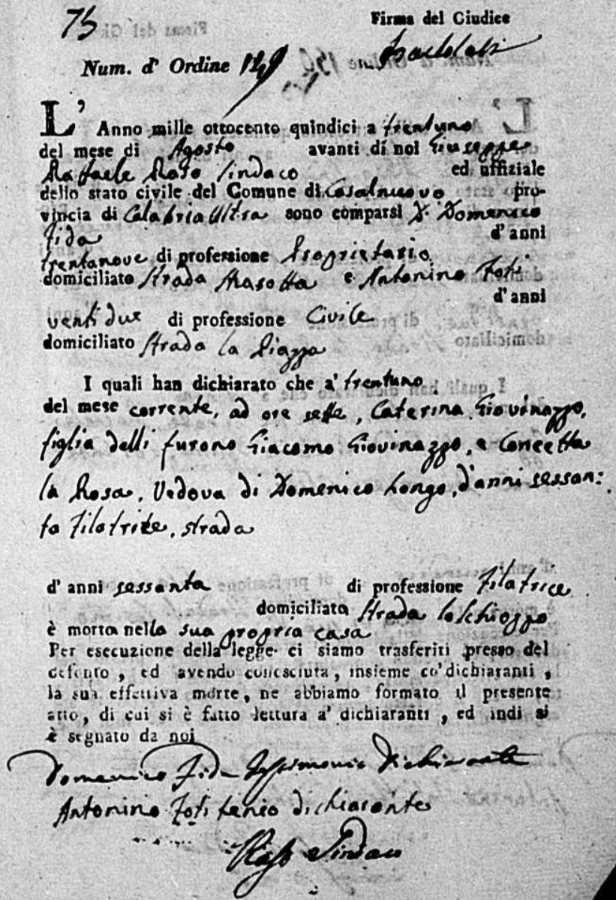 75
Firma del Giudice
Num. d' Ordine
L' Anno mille ottocento quindici a trentuno
del mese di Agosto avanti di noi Giuseppe
Raffaele Raso Sindaco ed uffiziale
dello stato civile del Comune di Casalnuovo pro-
vincia di Calabria Ultra sono comparsi D. Domenico
Fida d'anni
trentanove di professione Proprietario
domiciliato Strada e Antonino Foti
d'anni
venti due di professione Civile
domiciliato Strada la Piazza
I quali han dichiarato che a' trentuno
del mese corrente, ad ore sette, Caterina Giovinazzo,
figlia delli furono Giacomo Giovinazzo, e Concetta
la Rosa, Vedova di Domenico Longo, d'anni sessan:
ta Filatrice, strada
d' anni sessanta di professione Filatrice
domiciliata Strada
è morta nella sua propria casa
Per esecuzione della legge ci siamo trasferiti presso del
defonto, ed avendo conosciuta, insieme co' dichiaranti,
la sua effettiva morte, ne abbiamo formato il presente
atto, di cui si è fatto lettura a' dichiaranti, ed indi si
è segnato da noi
Domenico Fida Testimonio Dichiarante
Antonino Foti dichiarante
Raso Sindaco